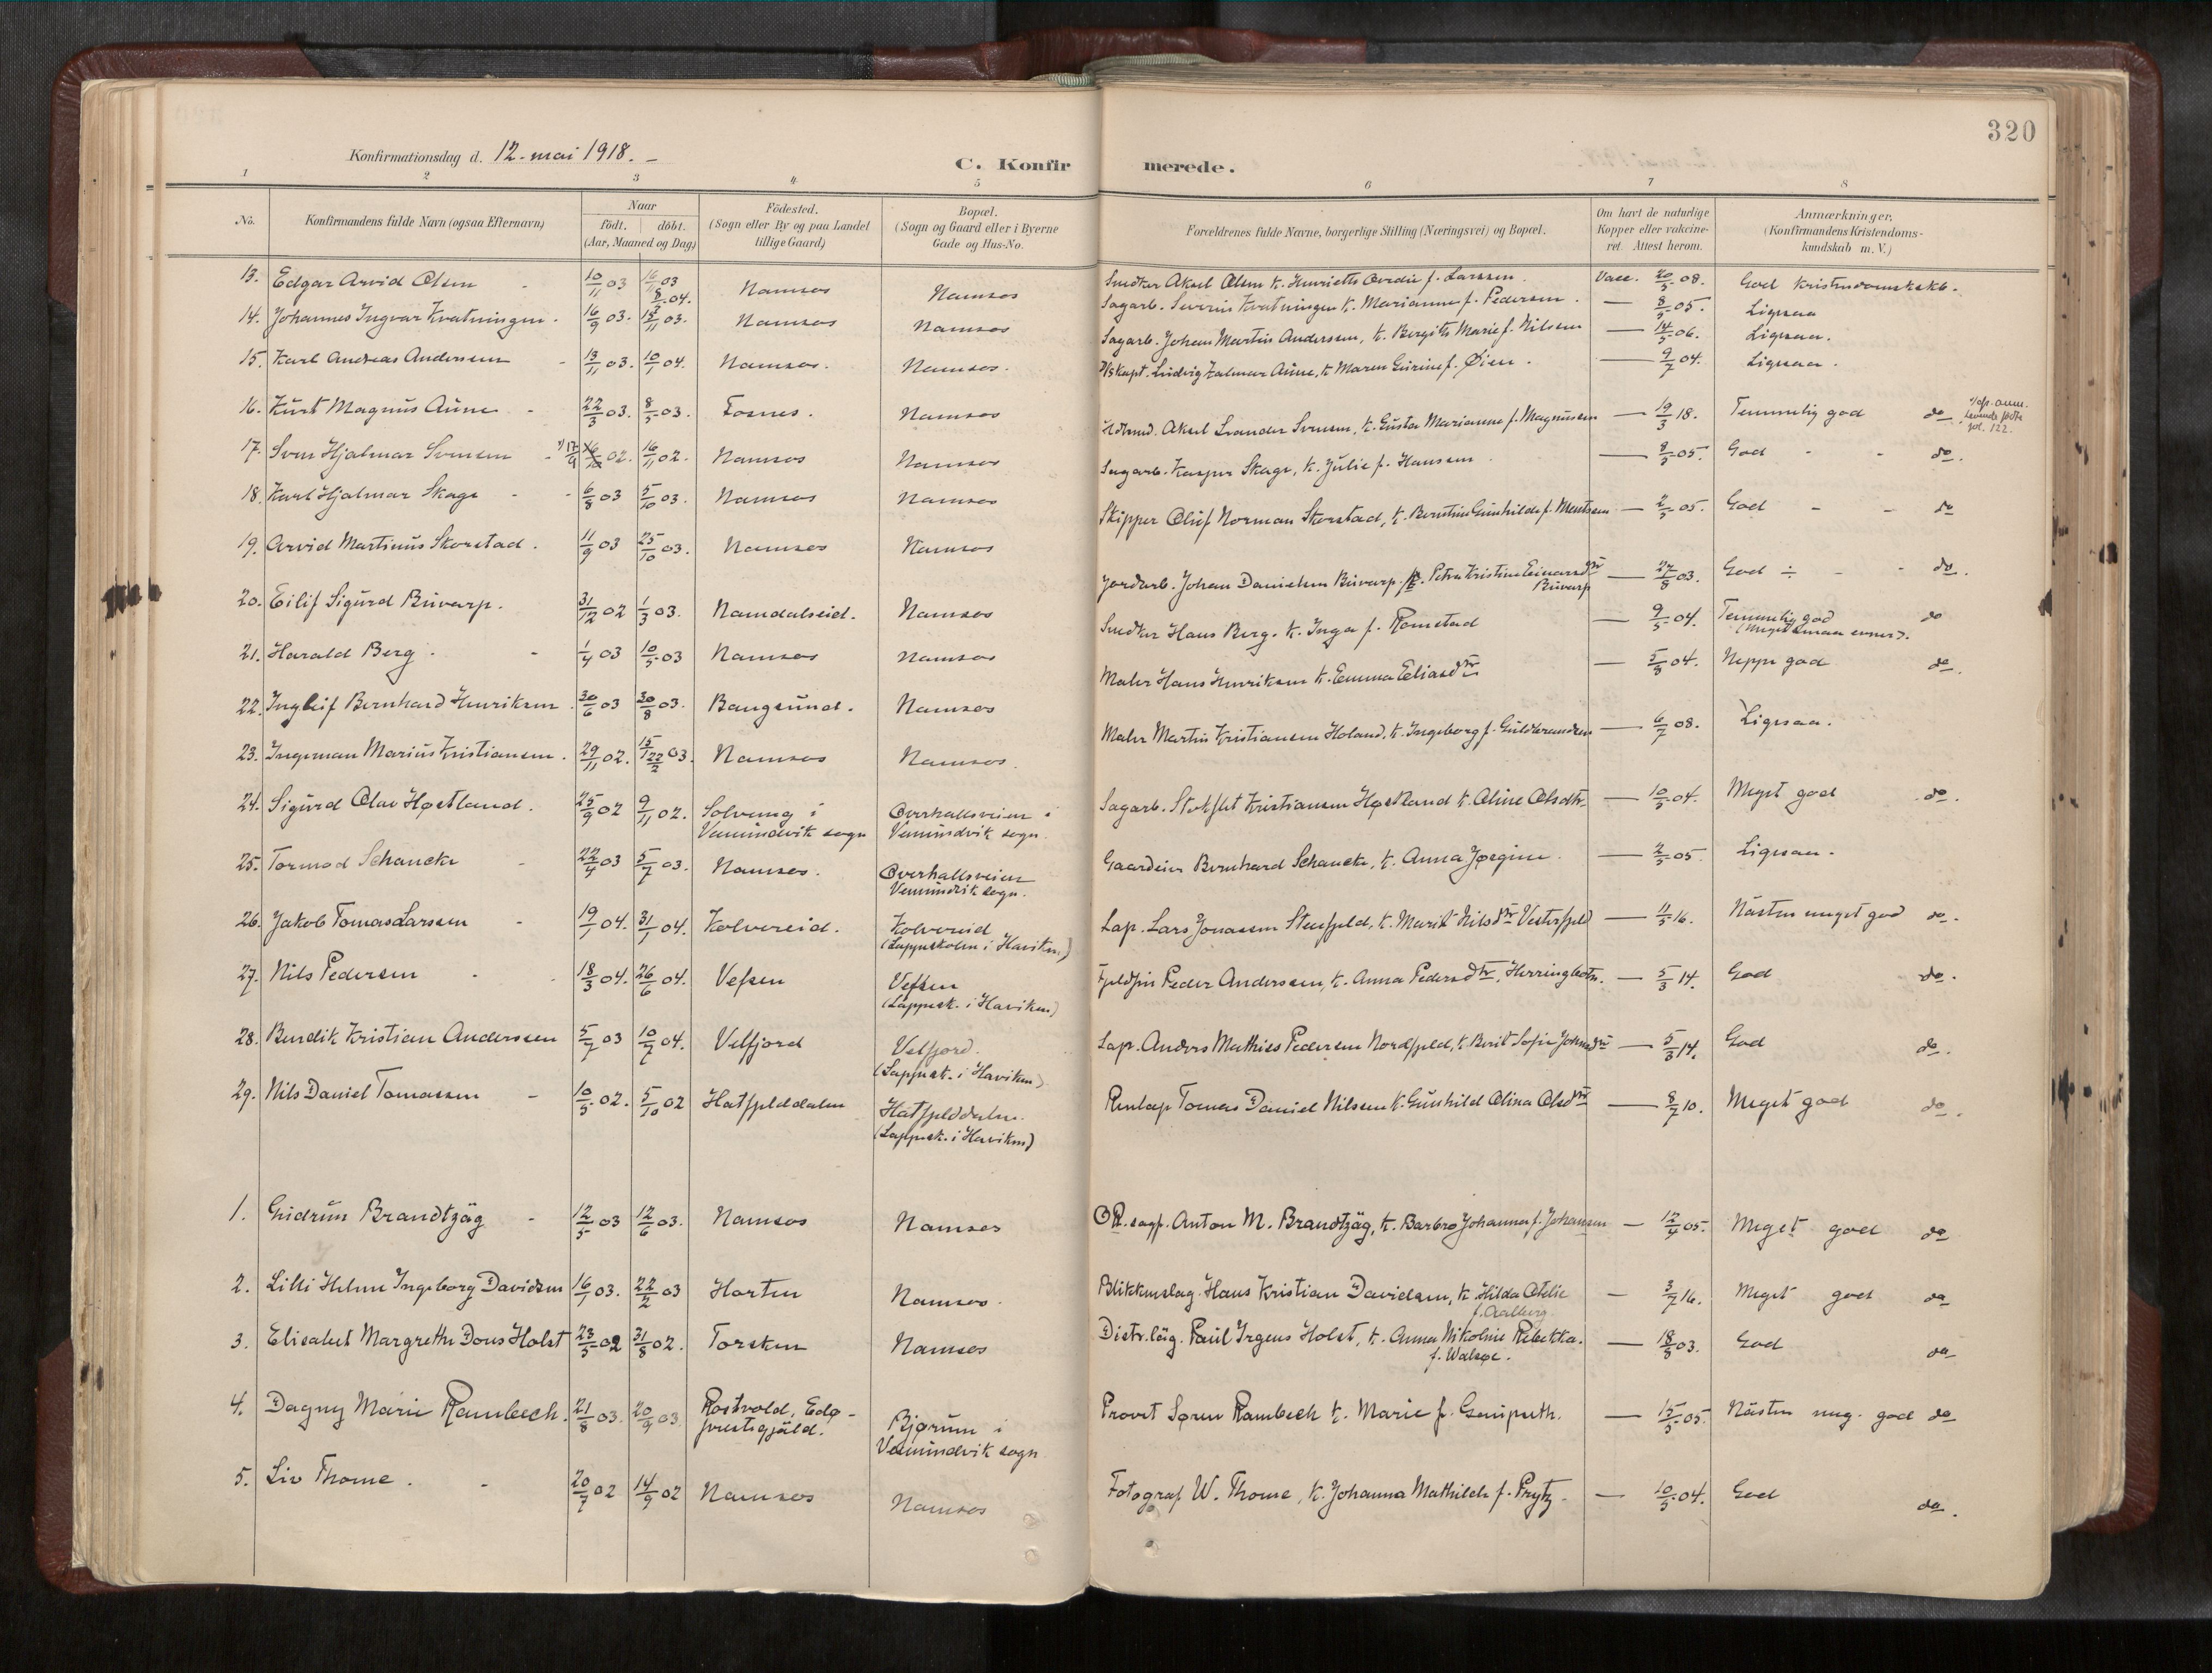 320
Konfirmationsdag d. 12. mai 1918.
C. Konfirmerede.
1 2 3 4 5 6 7 8
No.
Konfirmandens fulde Navn (ogsaa Efternavn)
Naar
födt. döbt.
(Aar, Maaned og Dag)
Födested.
(Sogn eller By og paa Landet
tillige Gaard)
Bopæl.
(Sogn og Gaard eller i Byerne
Gade og Hus-No.
Forældrenes fulde Navne, borgerlige Stilling (Næringsvei) og Bopæl.
Om havt de naturlige
Kopper eller vaccine-
ret. Attest herom.
Anmærkninger.
(Konfirmandens Kristendoms-
kundskab m. V.)
13. Edgar Arvid Olsen - 10/11 03 Namsos Namsos Snedker Aksel Olsen k. f. Larssen. Vacc. 20/5 08. God kristendomskskb.
14. Johannes Ingvar Kvatningen. 16/9 03. Namsos Namsos Sagarb. Severin Kvatningen k. Marianne f. Pedersen. — 8/5 05. Ligesaa
15. Karl Andreas Anderssen 13/11 03. 10/1 04. Namsos. Namsos. Sagarb. Johan Martin Anderssen, k. Bergitte Marie f. Nilssen — 14/5 06. Ligesaa.
16. Kurt Magnus Aune - 22/3 03. 8/5 03. Fosnes. Namsos D/skapt. Ludvig Halmar Aune, k. Maren f. Øien. — 9/7 04. Ligesaa.
17. Sven Hjalmar Svensen 1/ 17/9 02. 16/11 02. Namsos Namsos Aksel Leander Svensen, k. Gusta Marianne f. Magnussen — 19/3 18. Temmelig god do 1/ op. anm. levende födte fol. 122.
18. Karl Hjalmar Skage - 6/8 03 5/10 03. Namsos Namsos Sagarb. Kaspar Skage, k. Julie f. Hanssen — 8/5 05. God - - do.
19. Arvid Martinus Skorstad. 11/9 03 25/10 03. Namsos Namsos Skipper Oluf Norman Skorstad, k. Berntine Gunhilde f. Mentsen — 2/5 05. God - - do
20. Eilif Sigurd Buvarp. 31/12 02 1/3 03. Namdalseid. Namsos Jordarb. Johan Danielsen Buvarp. k. Petra Kristine Einarsdtr Buvarp — 27/8 03. God ÷ - - do.
21. Harald Berg. - 1/4 03 10/5 03 Namsos Namsos Snedker Hans Berg. k. Inga f. Romstad — 9/5 04. Temmelig god do
(meget smaa evner).
22. Ingleif Bernhard Henriksen 30/6 03 30/8 03. Bangsund. Namsos Maler Hans Henriksen k. Emma Eliasdtr — 5/8 04. Neppe god do.
23. Ingeman Marius Kristiansen. 29/11 02. 03. Namsos Namsos. Maler Martin Kristiansen Holand, k. Ingeborg f. Guldbrandsen — 6/7 08. Ligesaa.
24. Sigurd Olav Høstland. 25/9 02 9/11 02. Solvang i Vemundvik sogn Overhallsveien i Vemundvik sogn. Sagarb. Kristiansen Høstland k. Oline Olsdtr. — 10/5 04. Meget god do.
25. Tormod Schancke - 22/4 03 5/7 03. Namsos. Overhallsveien Vemundvik sogn. Gaardeier Bernhard Schancke, k. Anna Jørgine. — 2/5 05. Ligesaa.
26. Jakob Tomas Larssen - 19/1 04. 31/1 04. Kolvereid. Kolvereid (Lappeskolen i Haviken) Lap. Lars Jonassen Stenfjeld, k. Marit Nilsdtr Vesterfjeld — 11/5 16. Nästen meget god do.
27. Nils Pedersen - 18/3 04. 26/6 04. Vefsen Vefsen (Lappesk. i Haviken) Fjeldfin Peder Anderssen, k. Anna Pedersdtr. Herringbotn. — 5/3 14. God do.
28. Bendik Kristian Anderssen 5/7 03 10/7 04. Velfjord Velfjord. (Lappesk. i Haviken) Lap. Anders Mathias Pedersen Nordfjeld, k. Berit Sofie Johnsdtr — 5/3 14. God do.
29. Nils Daniel Tomassen - 10/5 02. 5/10 02 Hatfjelddalen Hatfjelddalen. (Lappesk. i Haviken) Renlap Tomas Daniel Nilssen k. Gunhild Olina Olsdtr — 8/7 10. Meget god do.
1. Gudrun Brandtzäg - 12/5 03 12/6 03. Namsos Namsos O.R. sagf. Anton M. Brandtzäg, k. Barbro Johanna f. Johansen — 12/4 05. Meget god do
2. Lilli Helene Ingeborg Davidsen 16/1 03. 22/2 03 Horten Namsos. Blikkenslag. Hans Kristian Davidsen, k. Hilda Otelie f. Aalberg. — 3/7 16. Meget god do
3. Elisabet Margrethe Dons Holst 23/5 02 31/8 02. Torsken Namsos Distr.läg. Paul Irgens Holst, k. Anna Nikoline Rebekka. f. Walsøe. — 18/8 03. God do
4. Dagny Marie Rambech. 21/8 03. 20/9 03. Rostvold, Edø- prestegjäld. Bjørum i Vemundvik sogn Provst Søren Rambech k. Marie f. — 15/5 05. Nästen meg. god do
5. Liv Thome. - 20/7 02 14/9 02 Namsos Namsos Fotograf W. Thome, k. Johanna Mathilde f. Prytz. — 10/5 04. God do.